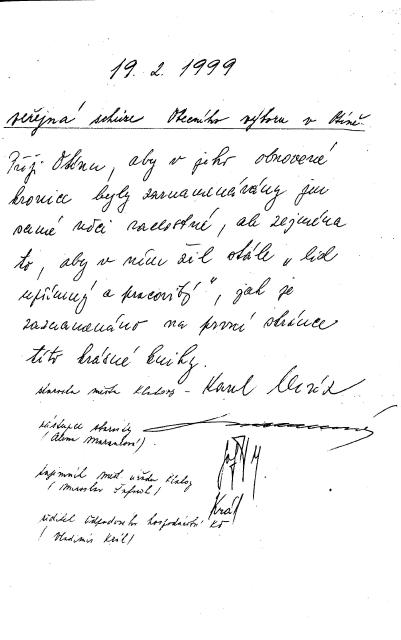 19. 2. 1999
veřejná schůze Obecního výboru v Otíně
Přeji Otínu, aby v jeho obnovené
kronice byly zaznamenávány jen
samé věci radostné, ale zejména
to, aby v něm žil stále „lid
upřímný a pracovitý“, jak je
zaznamenáno na první stránce
této krásné knihy.
starosta města Klatovy – Karel
zástupce starosty
tajemník měst. úřadu Klatovy
( Miroslav
ředitel Odpadového hospodářství KT
Král
( Vladimír Král )